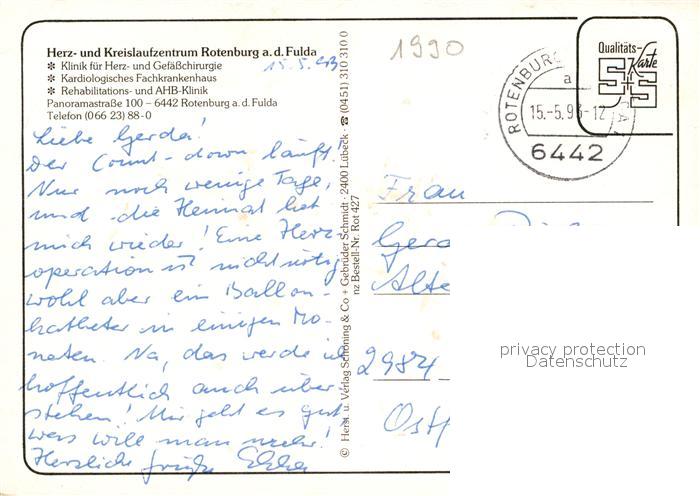 Herz- und Kreislaufzentrum Rotenburg a. d. Fulda
✻ Klinik für Herz- und Gefäßchirurgie
✻ Kardiologisches Fachkrankenhaus
✻ Rehabilitations- und AHB-Klinik
Panoramastraße 100 – 6442 Rotenburg a. d. Fulda
Telefon (0 66 23) 88-0
15.5.93
Liebe Gerda!
Der Count-down läuft!
Nur noch wenige Tage,
und die Heimat hat
mich wieder! Eine Herz-
operation ist nicht nötig,
wohl aber ein Ballon-
katheter in einigen Mo-
naten. Na, das werde ich
hoffentlich auch über-
stehen! Mir geht es gut,
was will man mehr!
Herzliche Grüße
© Herst. u. Verlag Schöning & Co + Gebrüder Schmidt · 2400 Lübeck · ☎ (0451) 310 310 0
nz Bestell-Nr. Rot 427
1990
ROTENBURG
a
15.-5.93-12
6442
Qualitäts-
Karte
S+S
Frau
Alte
2984
Ostf
privacy protection
Datenschutz